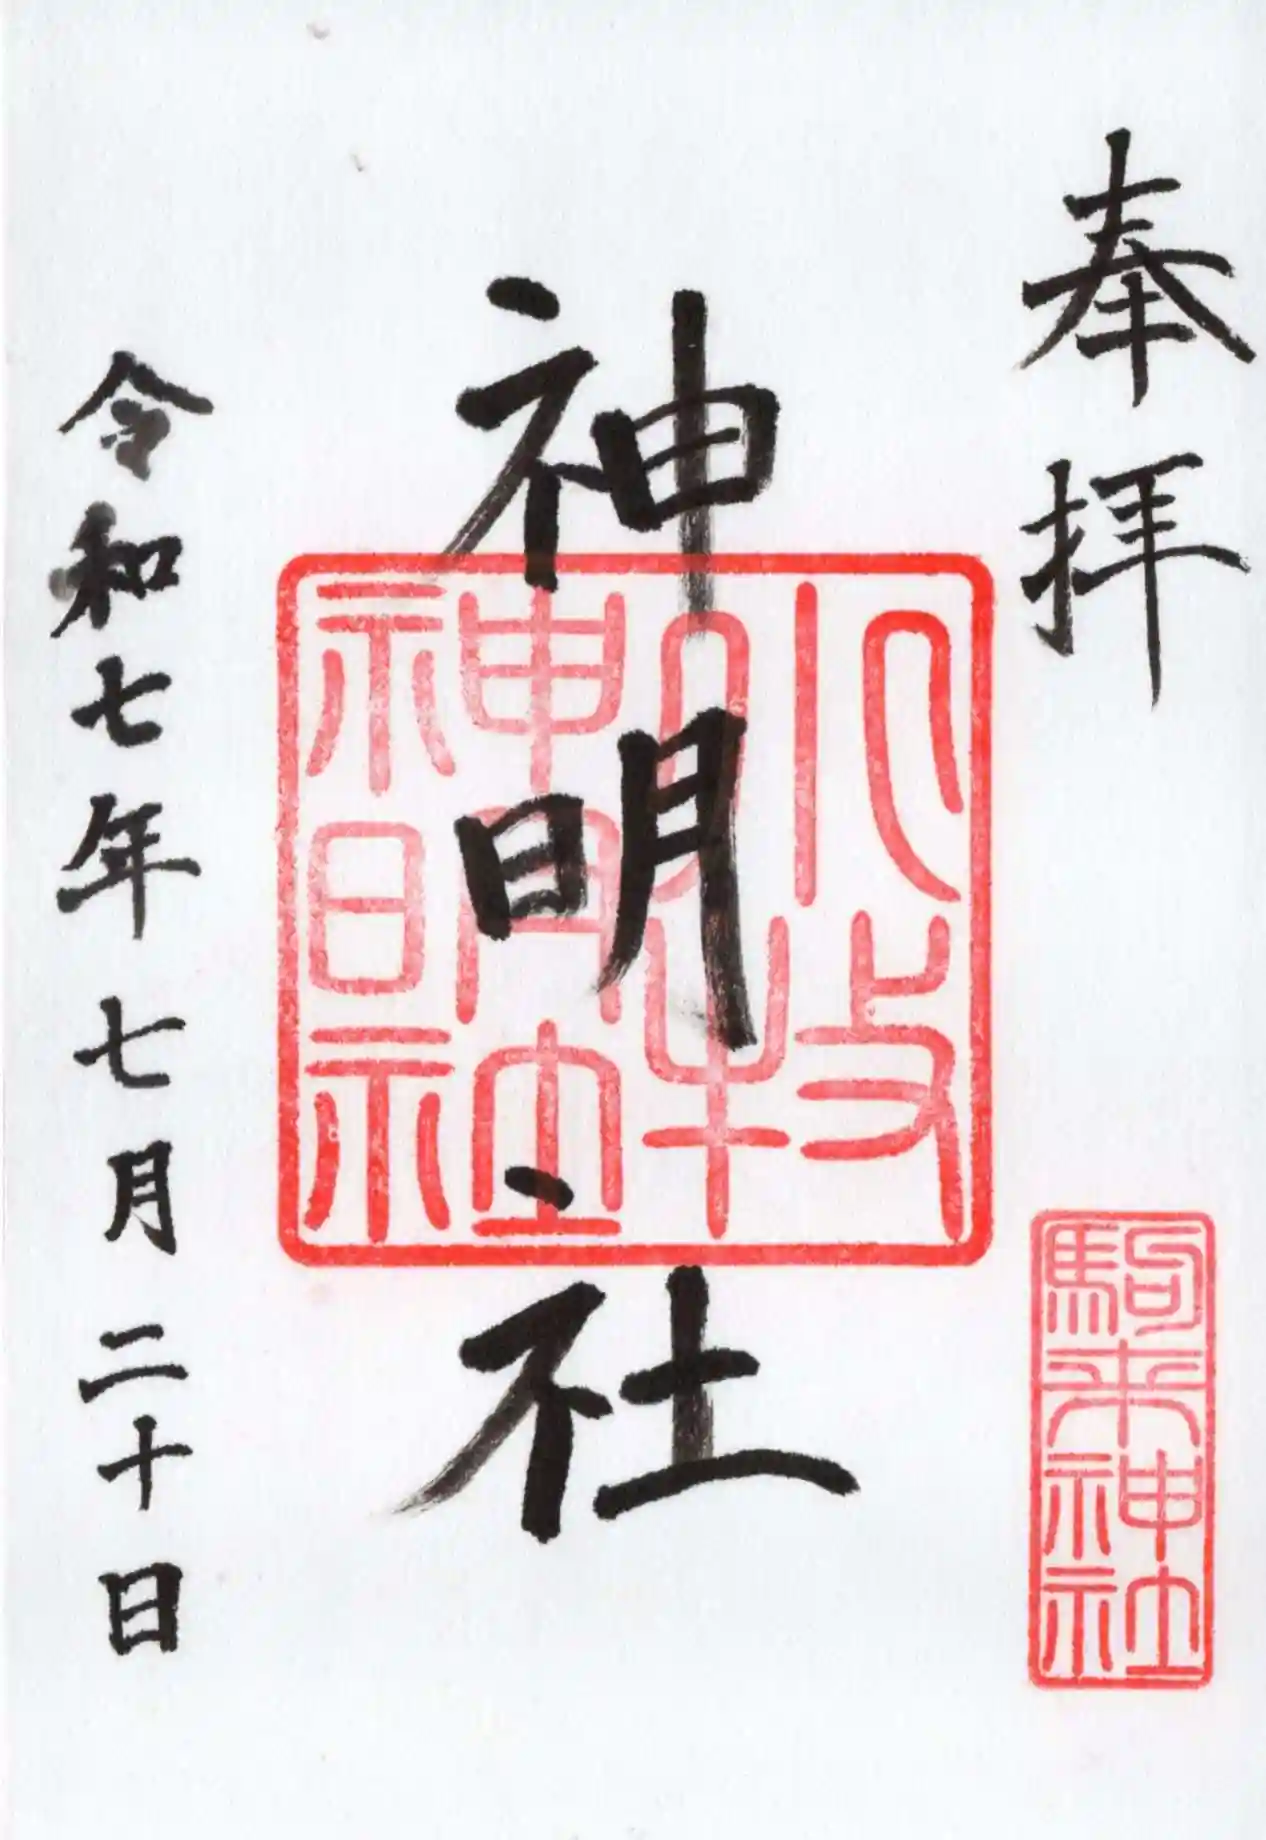 奉拝
駒来神社
神明社
神明社
令和七年七月二十日